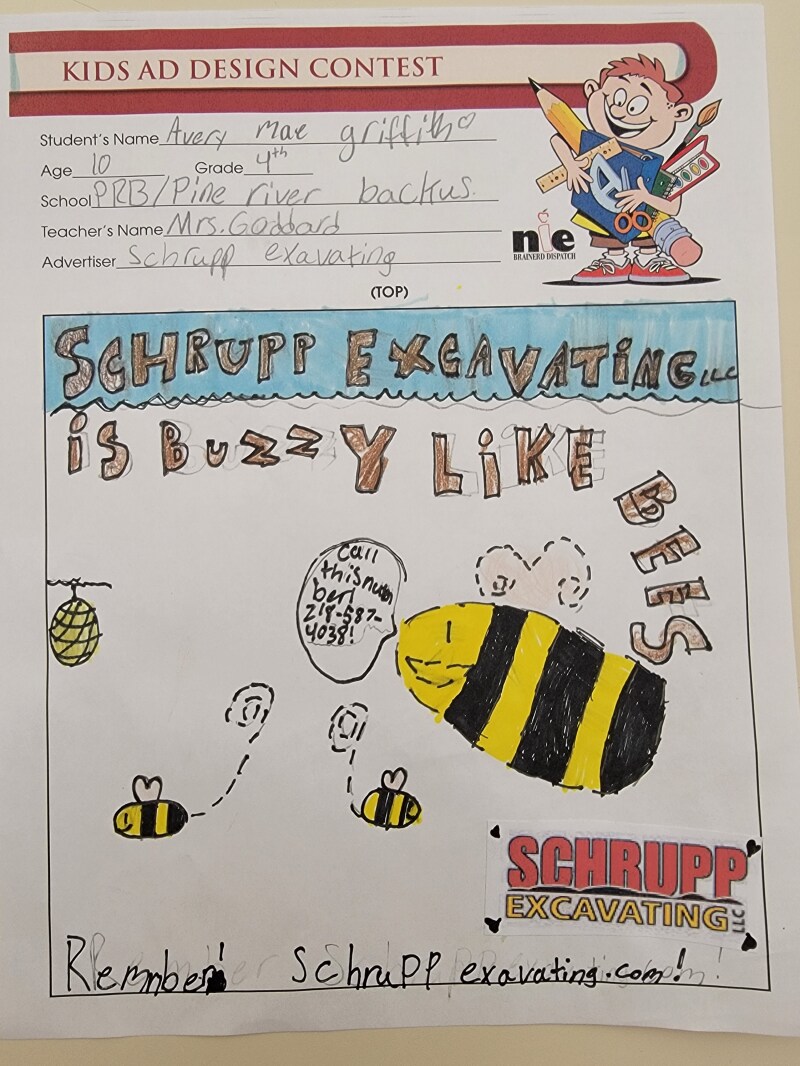 KIDS AD DESIGN CONTEST
Student's Name Avery mae griffith
Age 10 Grade 4th
School PRB/Pine river backus
Teacher's Name Mrs. Goddard
Advertiser Schrupp exavating
nie
BRAINERD DISPATCH
(TOP)
SCHRUPP EXCAVATING LLC
is BUZZY LiKE
BEES
Call
this num
ber!
218-587-
4038!
SCHRUPP
EXCAVATING LLC
Remember! Schrupp exavating.com!